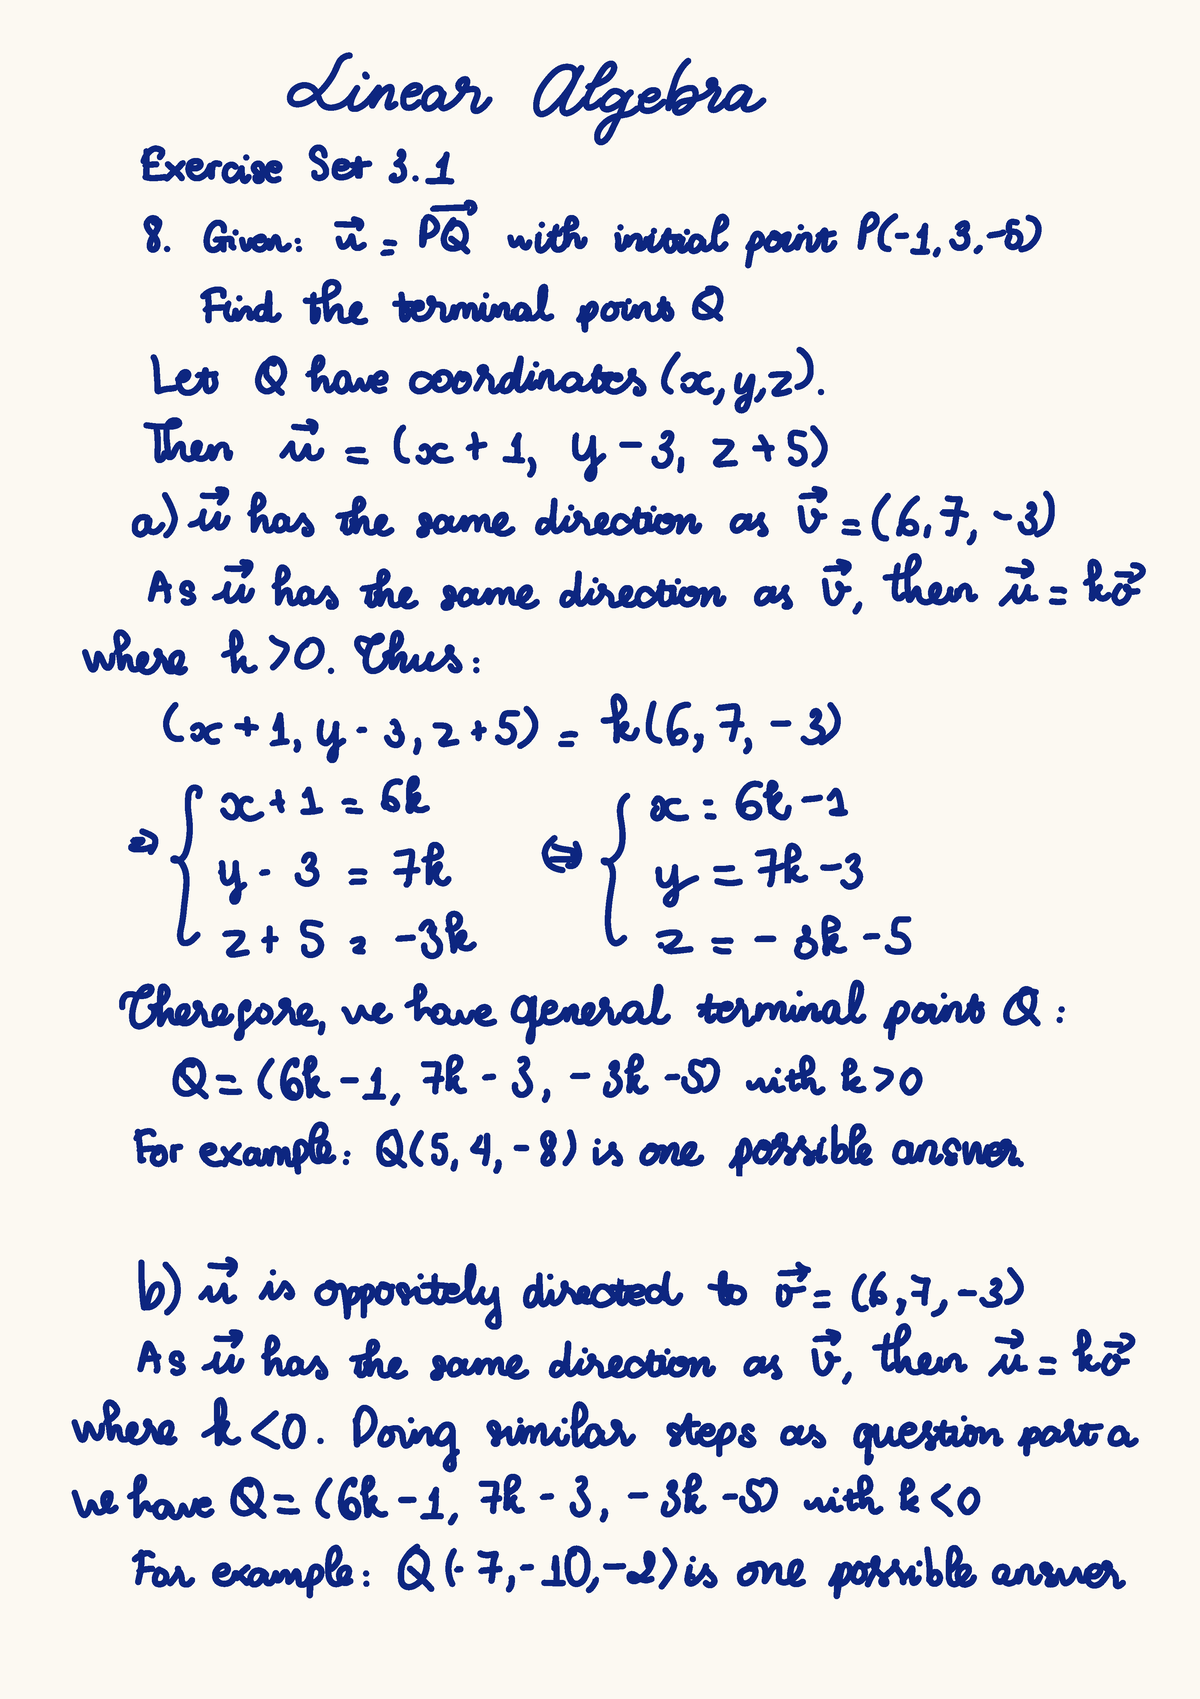 Linear Algebra
Exercise Set 3.1
8. Given: u⃗ = PQ⃗ with initial point P(-1, 3, -5)
Find the terminal point Q
Let Q have coordinates (x, y, z).
Then u⃗ = (x + 1, y - 3, z + 5)
a) u⃗ has the same direction as v⃗ = (6, 7, -3)
As u⃗ has the same direction as v⃗, then u⃗ = kv⃗
where k > 0. Thus:
(x + 1, y - 3, z + 5) = k(6, 7, -3)
⇒ { x + 1 = 6k ⇔ { x = 6k - 1
y - 3 = 7k y = 7k - 3
z + 5 = -3k z = -3k - 5
Therefore, we have general terminal point Q:
Q = (6k - 1, 7k - 3, -3k - 5) with k > 0
For example: Q(5, 4, -8) is one possible answer.
b) u⃗ is oppositely directed to v⃗ = (6, 7, -3)
As u⃗ has the same direction as v⃗, then u⃗ = kv⃗
where k < 0. Doing similar steps as question part a
we have Q = (6k - 1, 7k - 3, -3k - 5) with k < 0
For example: Q(-7, -10, -2) is one possible answer